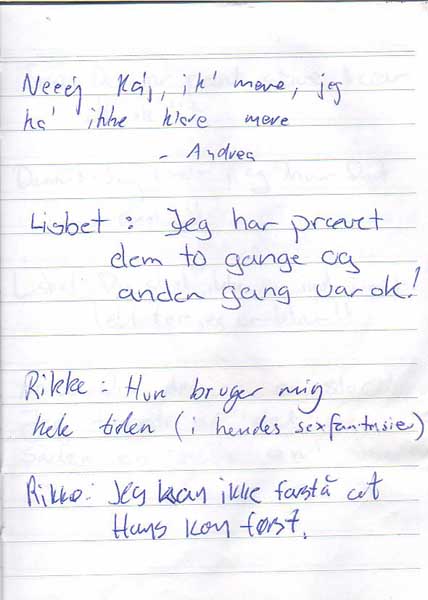 Neeej Kaj, ik' mere, jeg
ka' ikke klare mere
- Andrea
Lisbet : Jeg har prøvet
dem to gange og
anden gang var ok!
Rikke : Hun bruger mig
hele tiden (i hendes sexfantasier)
Rikke: Jeg kan ikke forstå at
Hans kom først.